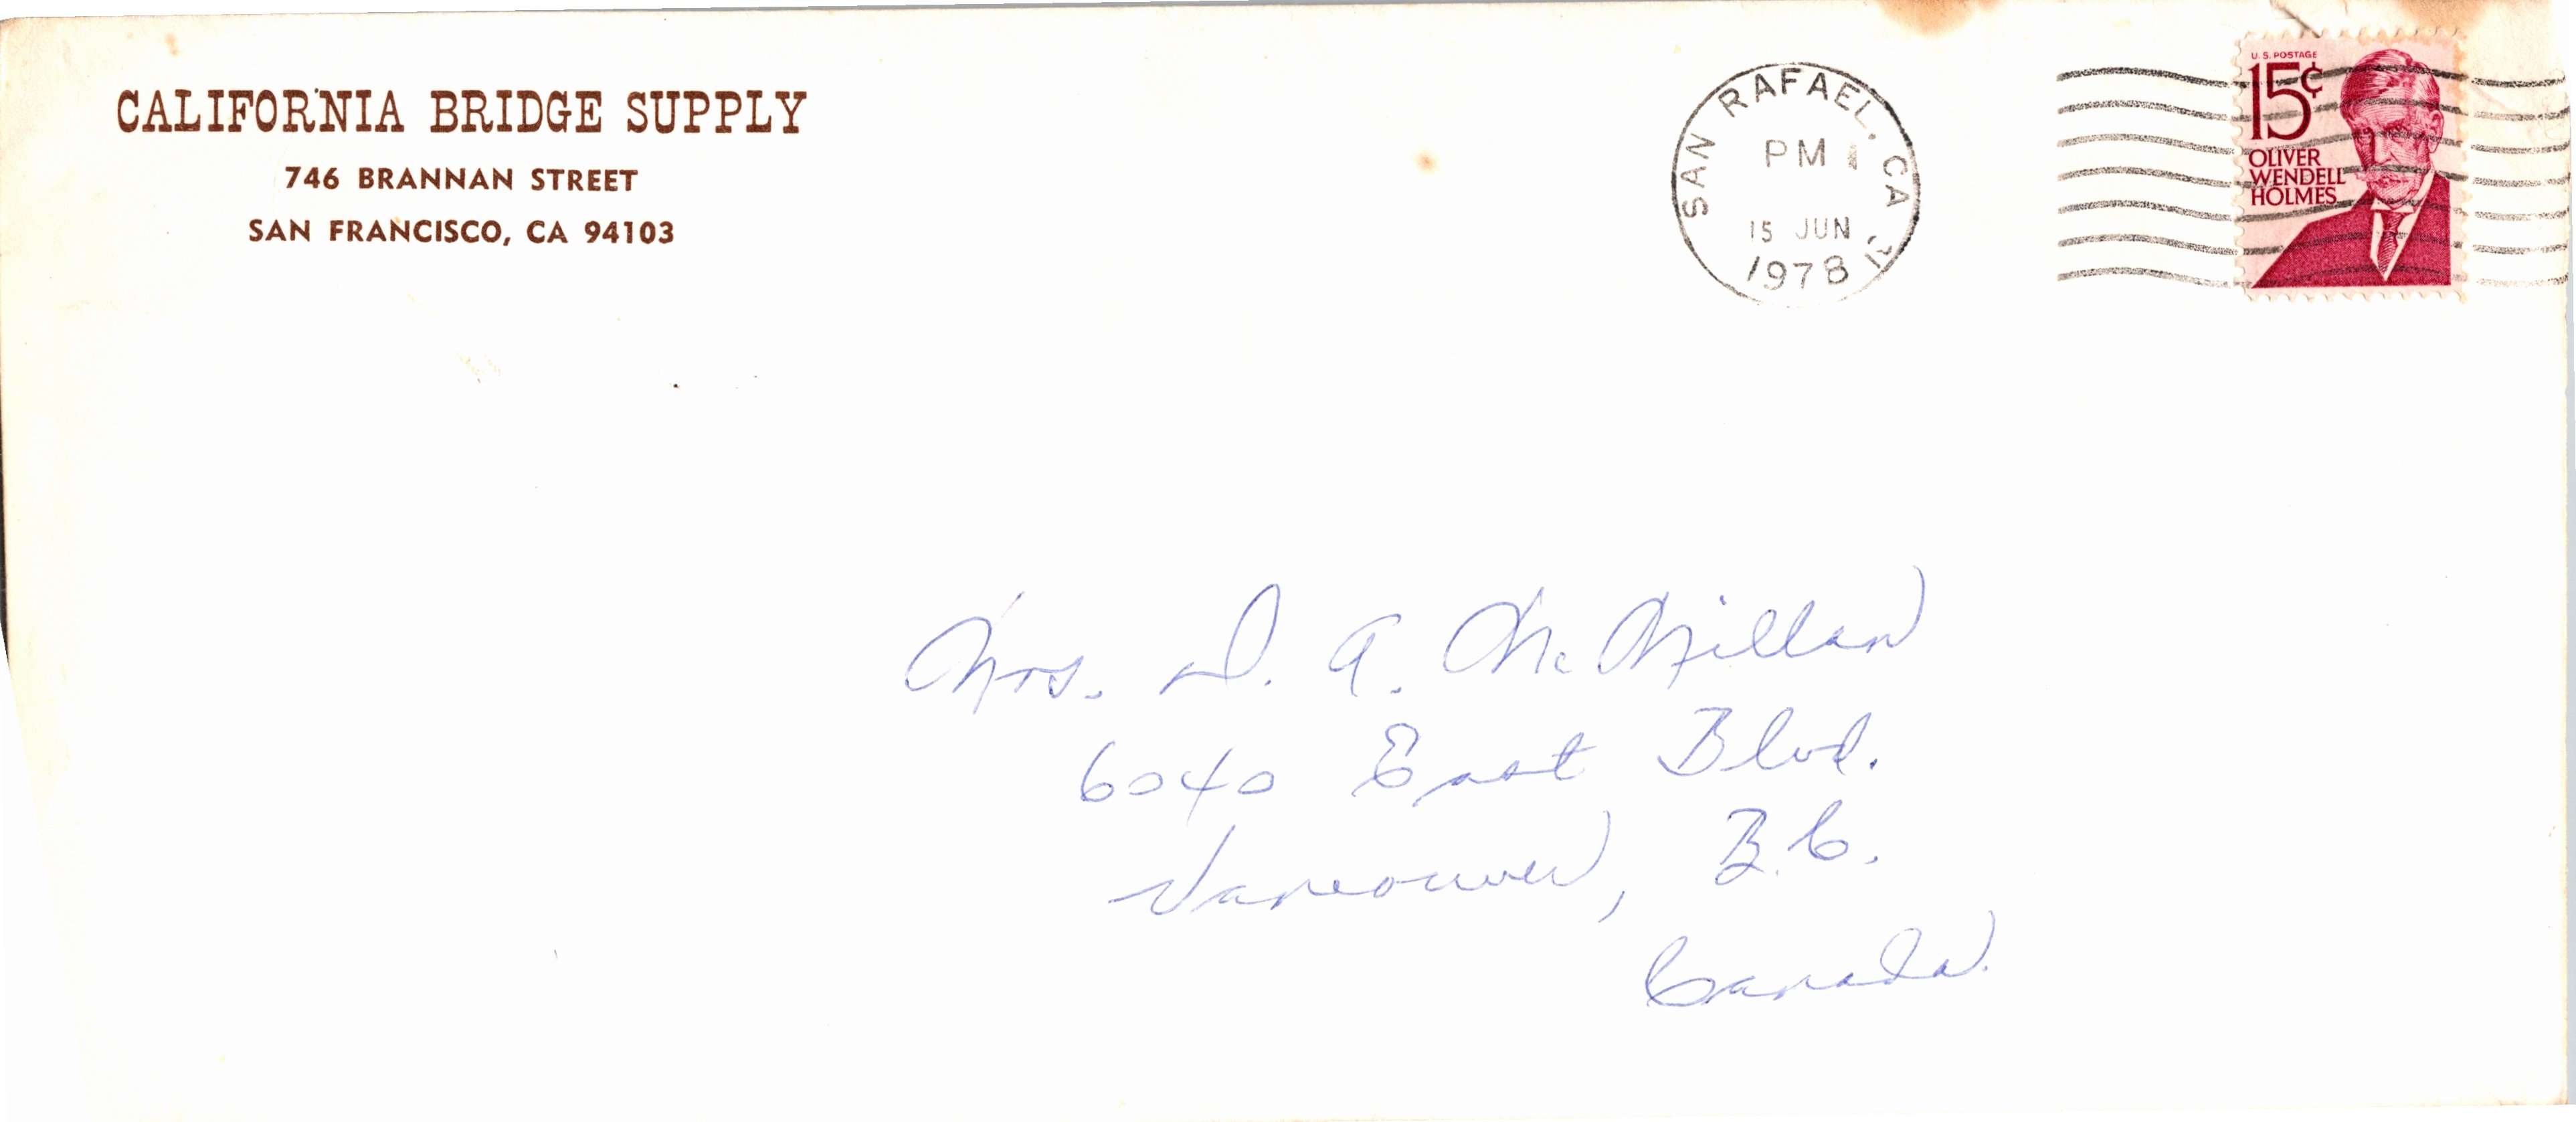 CALIFORNIA BRIDGE SUPPLY
746 BRANNAN STREET
SAN FRANCISCO, CA 94103
SAN RAFAEL, CA
PM
15 JUN
1978
U.S. POSTAGE
15¢
OLIVER
WENDELL
HOLMES
Mrs. D. A. McMillan
6040 East Blvd.
Vancouver, B.C.
Canada.